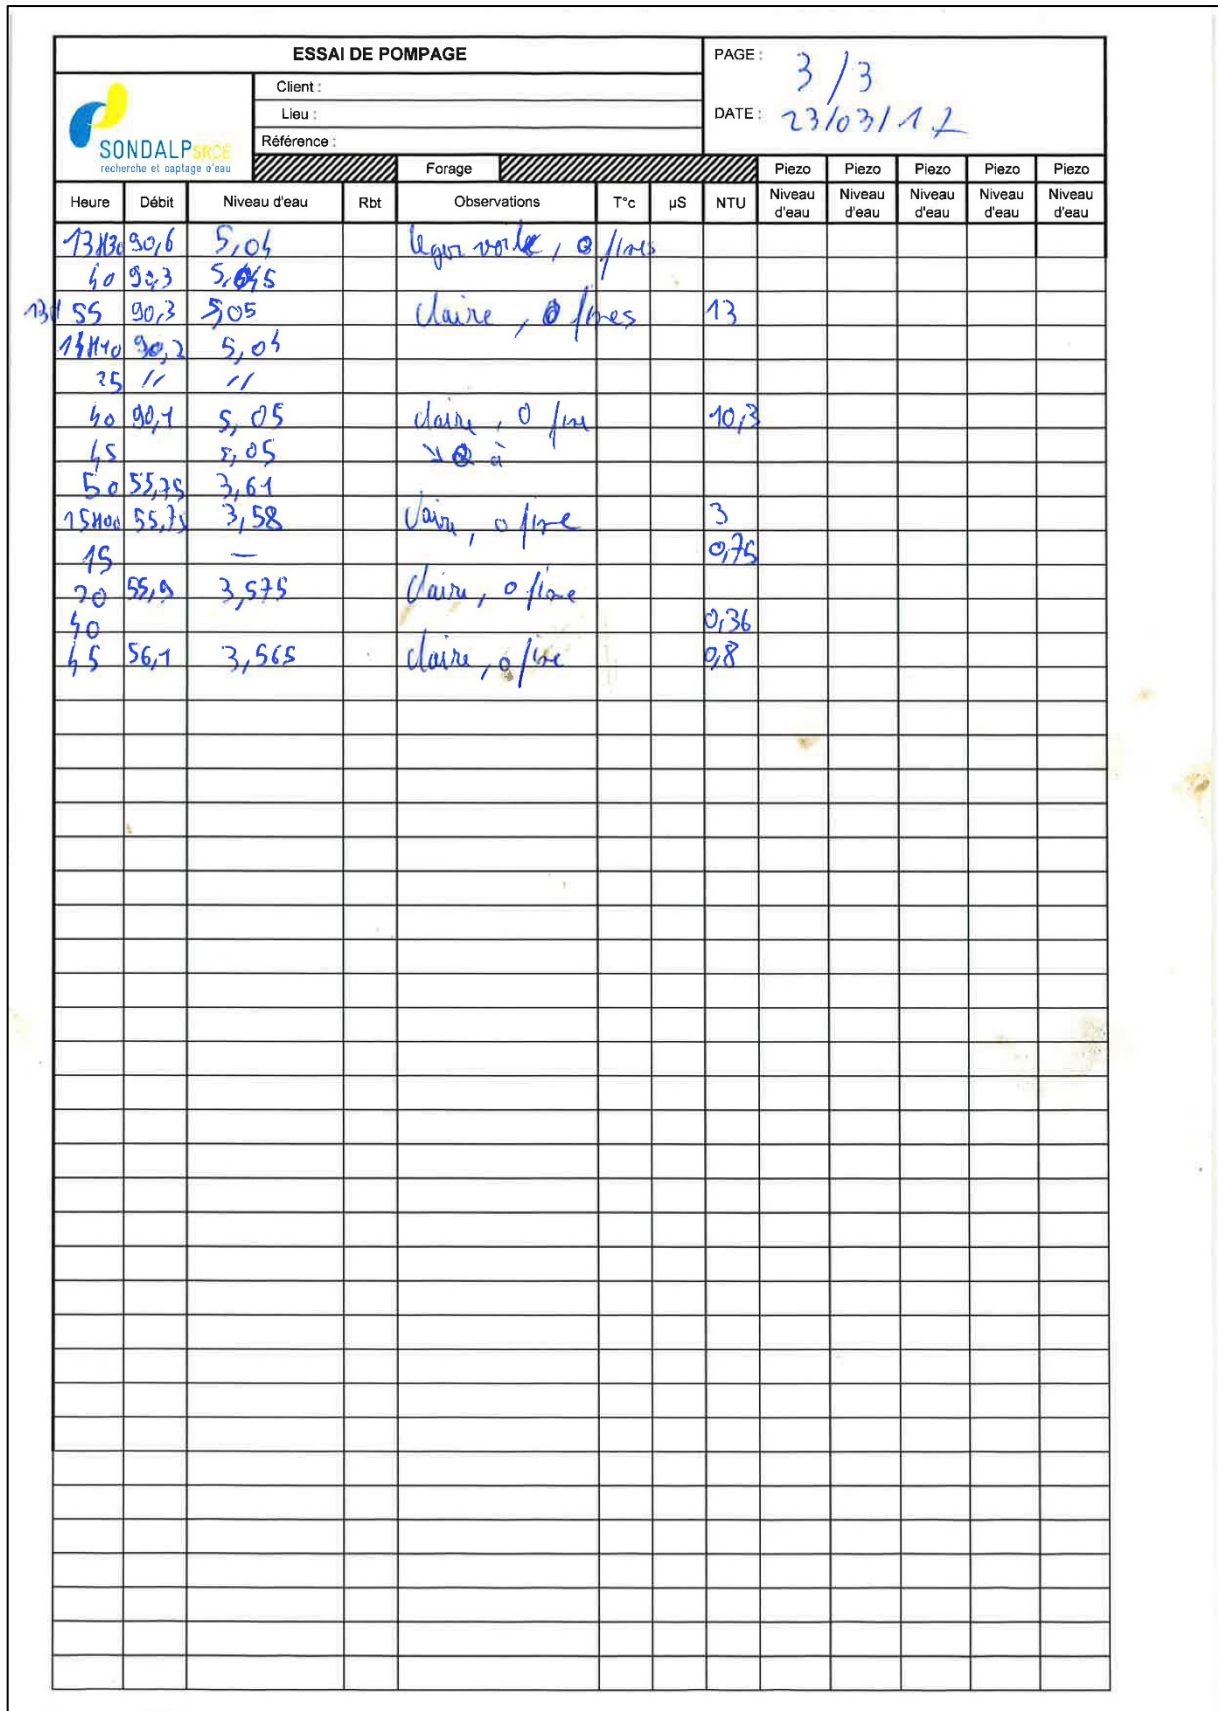 ESSAI DE POMPAGE
PAGE : 3/3
Client :
Lieu :
DATE : 23/03/17
Référence :
SONDALP SRCE
recherche et captage d'eau
Forage Piezo Piezo Piezo Piezo Piezo
Heure Débit Niveau d'eau Rbt Observations T°c µS NTU Niveau d'eau Niveau d'eau Niveau d'eau Niveau d'eau Niveau d'eau
13H30 90,6 5,04 leger voile, 0 fines
40 90,3 5,045
13H 55 90,3 5,05 claire, 0 fines 13
14H10 90,2 5,04
25 // //
40 90,1 5,05 claire, 0 fine 10,3
45 5,05 ↘ Q à
50 55,75 3,61
15H00 55,75 3,58 claire, 0 fine 3
15 — 0,75
20 55,9 3,575 claire, 0 fine
40 0,36
45 56,1 3,565 claire, 0 fine 0,8